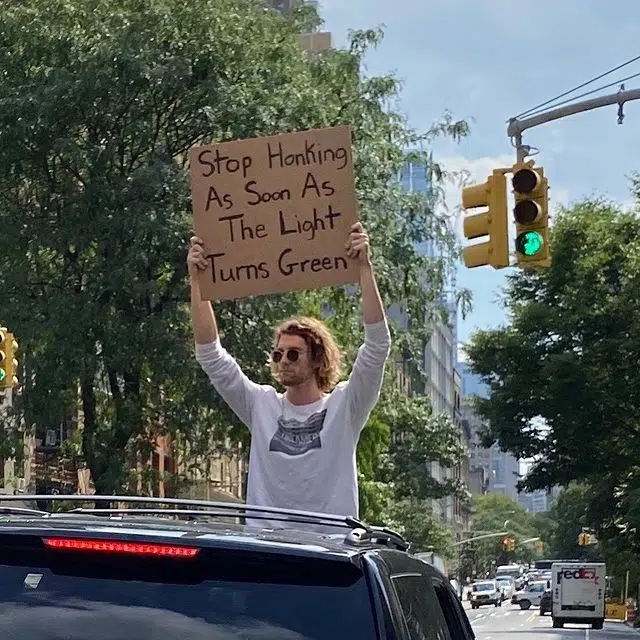 Stop Honking
As Soon As
The Light
Turns Green
FedEx